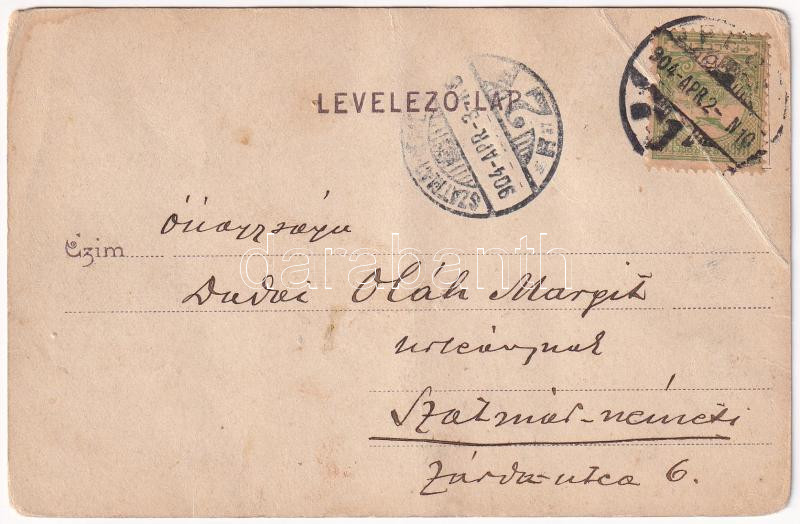 LEVELEZŐ-LAP
904-APR.2- N10
904-APR-3-
Czim
Őnagysága
Dudai Oláh Margit
urleánynak
Szatmár-németi
Zárda utca 6.
darabanth